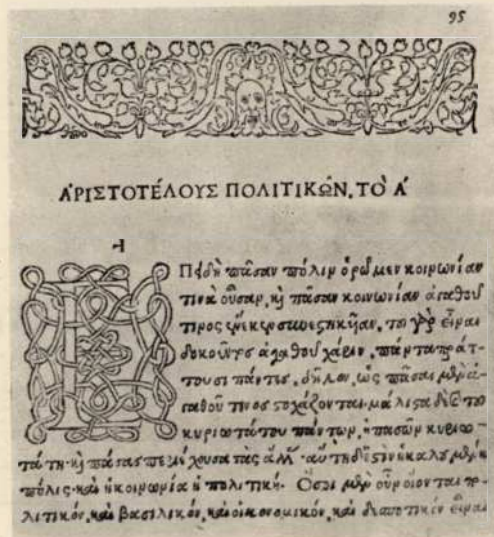 95
ΑΡΙΣΤΟΤΕΛΟΥΣ ΠΟΛΙΤΙΚΩ͂Ν. ΤῸ Α΄
ΕΠειδὴ πᾶσαν πόλιν ὁρῶμεν κοινωνίαν
τινὰ οὖσαν, καὶ πᾶσαν κοινωνίαν ἀγαθοῦ
τινος ἕνεκεν συνεστηκυῖαν. τοῦ γὰρ εἶναι
δοκοῦντος ἀγαθοῦ χάριν, πάντα πράτ-
τουσι πάντες. δῆλον, ὡς πᾶσαι μὲν ἀ-
γαθοῦ τινος στοχάζονται. μάλιστα δὲ καὶ τοῦ
κυριωτάτου πάντων, ἡ πασῶν κυριω-
τάτη. καὶ πάσας περιέχουσα τὰς ἄλλας. αὕτη δ' ἐστὶν ἡ καλουμένη
πόλις. καὶ ἡ κοινωνία ἡ πολιτική. Ὅσοι μὲν οὖν οἴονται πο-
λιτικόν, καὶ βασιλικόν, καὶ οἰκονομικόν, καὶ δεσποτικὸν εἶναι